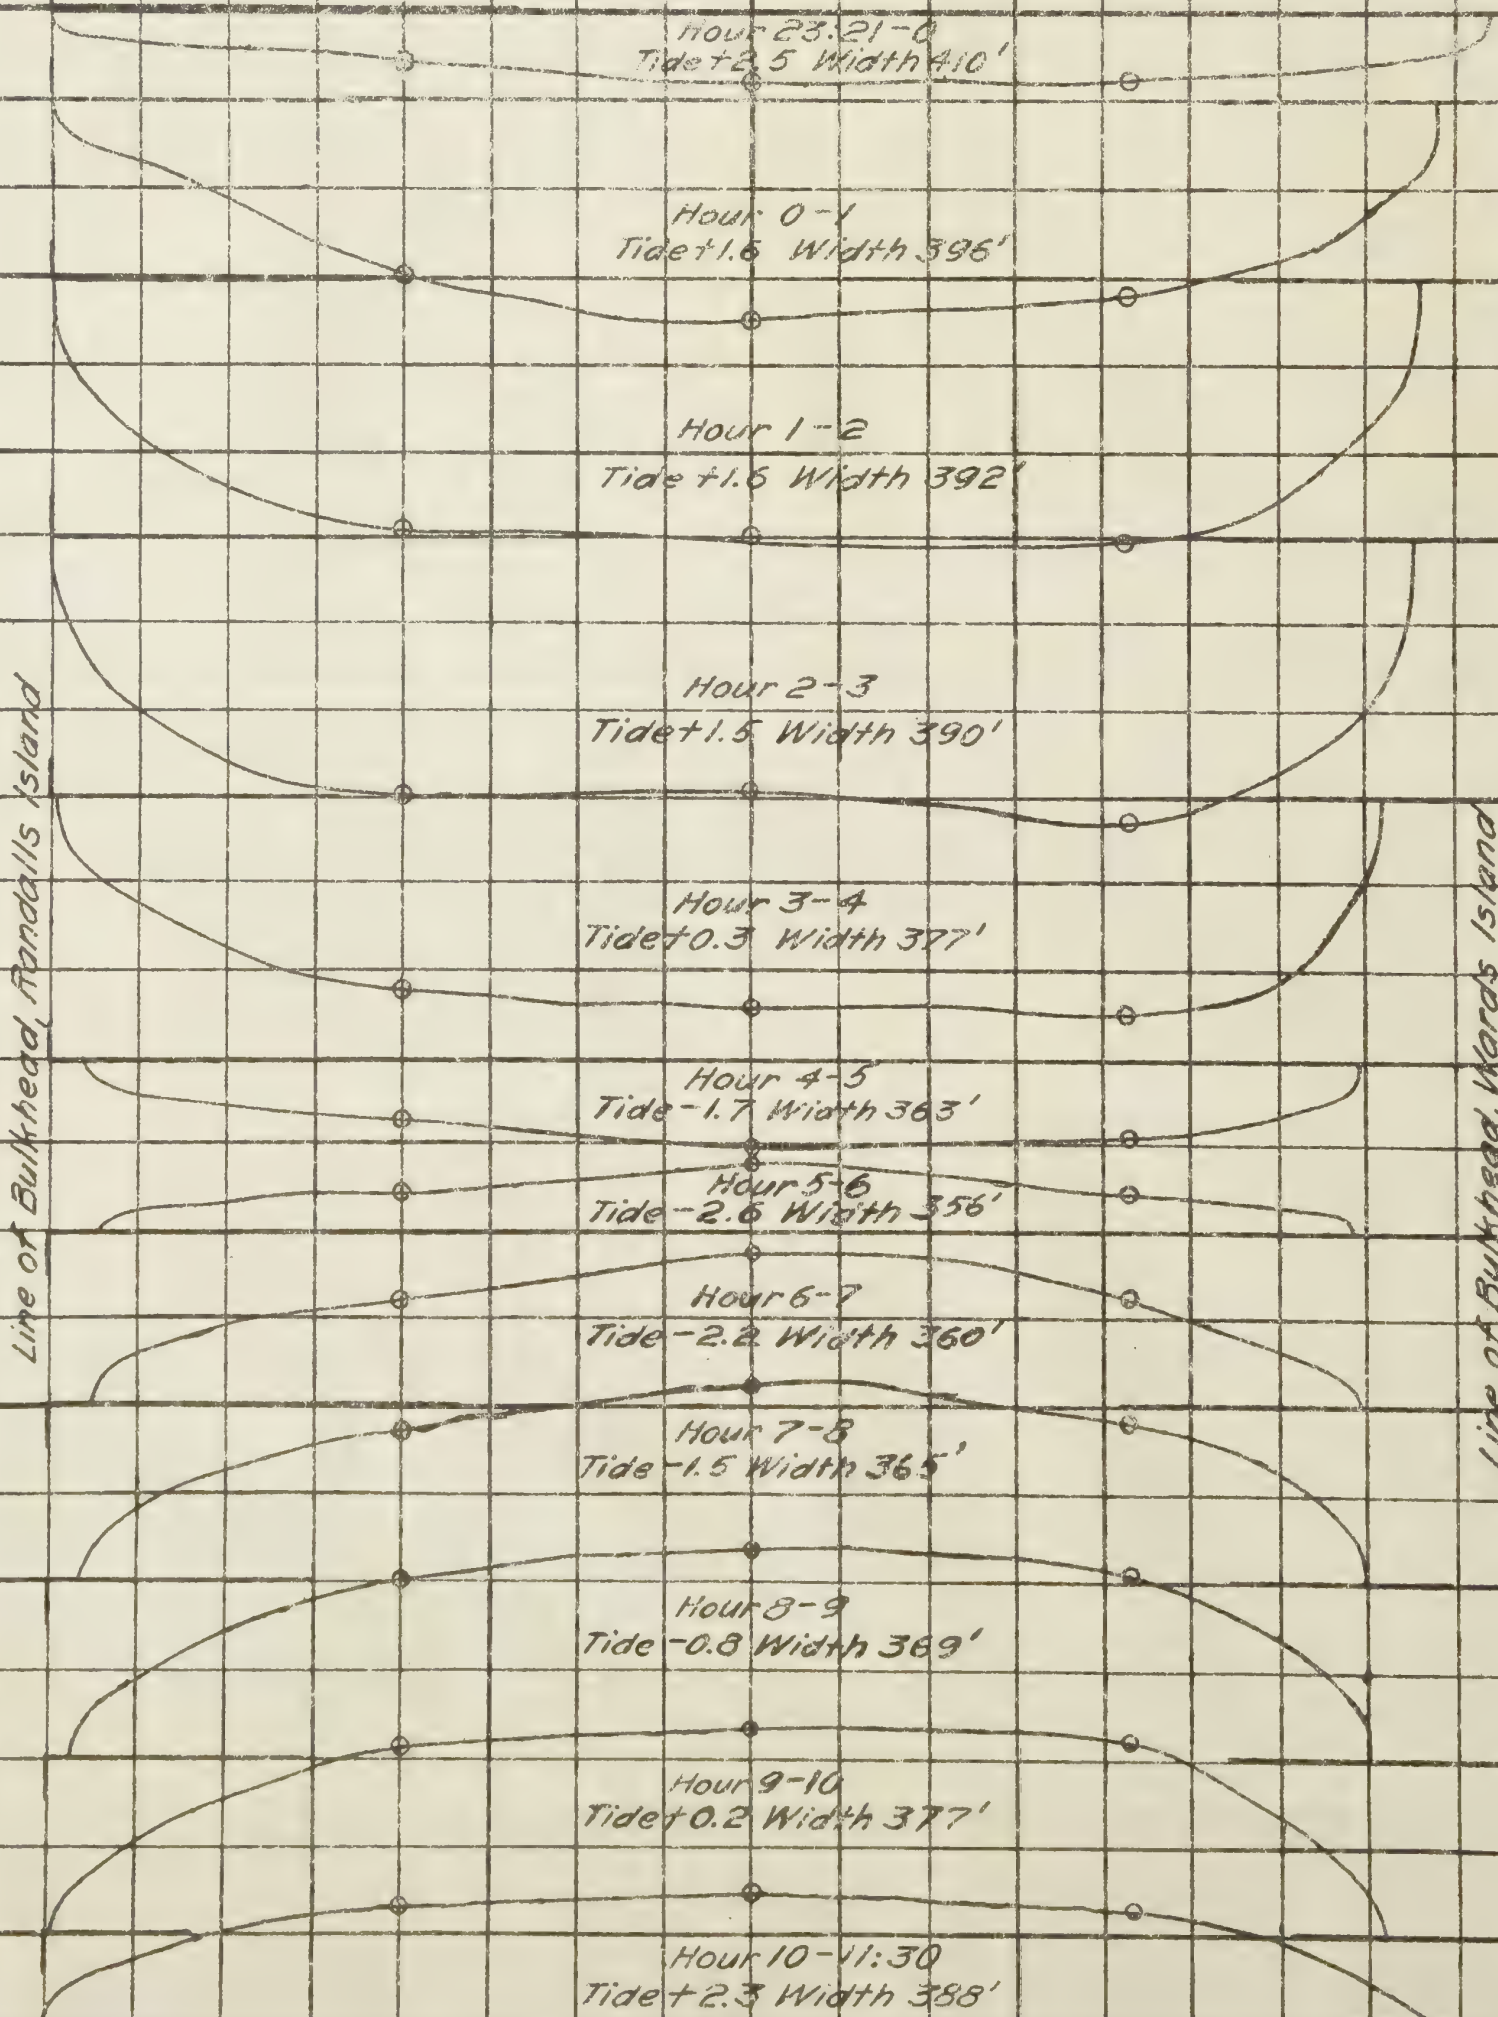 Hour 23:21-0
Tide+2.5 Width 410'
Hour 0-1
Tide+1.6 Width 396'
Hour 1-2
Tide+1.6 Width 392'
Hour 2-3
Tide+1.5 Width 390'
Hour 3-4
Tide+0.3 Width 377'
Hour 4-5
Tide-1.7 Width 363'
Hour 5-6
Tide-2.6 Width 356'
Hour 6-7
Tide-2.2 Width 360'
Hour 7-8
Tide-1.5 Width 365'
Hour 8-9
Tide-0.8 Width 369'
Hour 9-10
Tide+0.2 Width 377'
Hour 10-11:30
Tide+2.3 Width 388'
Line of Bulkhead, Randalls Island
Line of Bulkhead, Wards Island